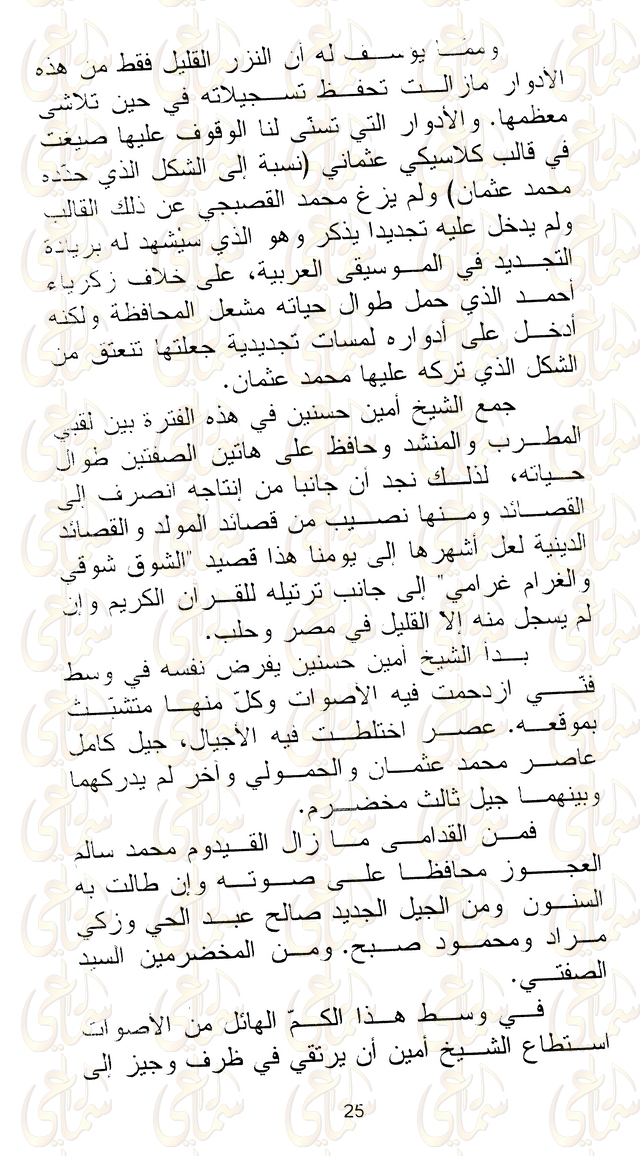 ومما يؤسف له أن النزر القليل فقط من هذه
الأدوار مازالت تحفظ تسجيلاته في حين تلاشى
معظمها. والأدوار التي تسنّى لنا الوقوف عليها صيغت
في قالب كلاسيكي عثماني (نسبة إلى الشكل الذي حدّده
محمد عثمان) ولم يزغ محمد القصبجي عن ذلك القالب
ولم يدخل عليه تجديدا يذكر وهو الذي سيُشهد له بريادة
التجديد في الموسيقى العربية، على خلاف زكرياء
أحمد الذي حمل طوال حياته مشعل المحافظة ولكنه
أدخل على أدواره لمسات تجديدية جعلتها تنعتق من
الشكل الذي تركه عليها محمد عثمان.
جمع الشيخ أمين حسنين في هذه الفترة بين لقبي
المطرب والمنشد وحافظ على هاتين الصفتين طوال
حياته، لذلك نجد أن جانبا من إنتاجه انصرف إلى
القصائد ومنها نصيب من قصائد المولد والقصائد
الدينية لعل أشهرها إلى يومنا هذا قصيد "الشوق شوقي
والغرام غرامي" إلى جانب ترتيله للقرآن الكريم وإن
لم يسجل منه إلا القليل في مصر وحلب.
بدأ الشيخ أمين حسنين يفرض نفسه في وسط
فنّي ازدحمت فيه الأصوات وكلّ منها متشبّث
بموقعه. عصر اختلطت فيه الأجيال، جيل كامل
عاصر محمد عثمان والحمولي وآخر لم يدركهما
وبينهما جيل ثالث مخضرم.
فمن القدامى ما زال القيدوم محمد سالم
العجوز محافظا على صوته وإن طالت به
السنون ومن الجيل الجديد صالح عبد الحي وزكي
مراد ومحمود صبح. ومن المخضرمين السيد
الصفتي.
في وسط هذا الكمّ الهائل من الأصوات
استطاع الشيخ أمين أن يرتقي في ظرف وجيز إلى
25